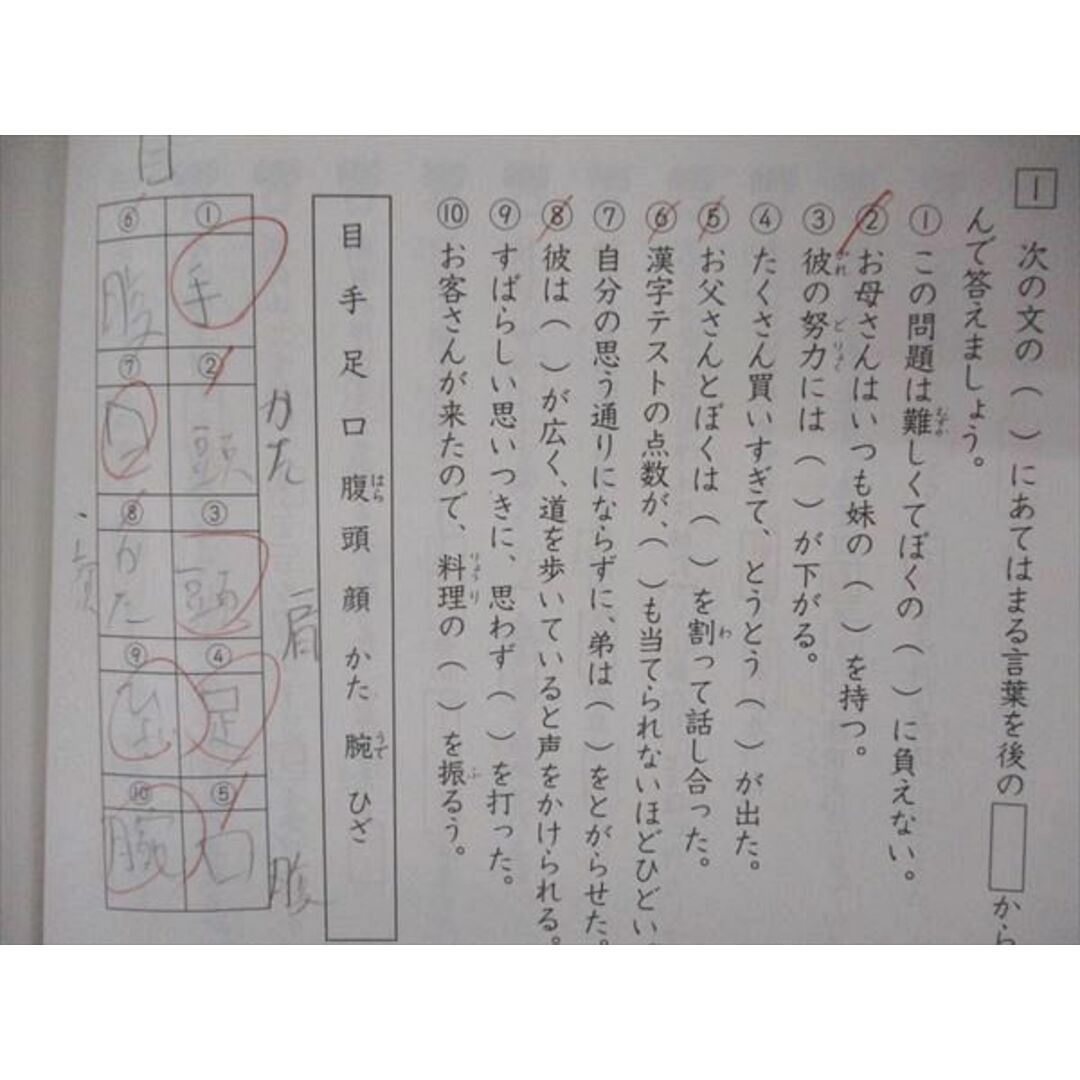 1 次の文の( )にあてはまる言葉を後の□から
んで答えましょう。
①この問題は難しくてぼくの( )に負えない。
②お母さんはいつも妹の( )を持つ。
③彼の努力には( )が下がる。
④たくさん買いすぎて、とうとう( )が出た。
⑤お父さんとぼくは( )を割って話し合った。
⑥漢字テストの点数が、( )も当てられないほどひどい
⑦自分の思う通りにならずに、弟は( )をとがらせた。
⑧彼は( )が広く、道を歩いていると声をかけられる。
⑨すばらしい思いつきに、思わず( )を打った。
⑩お客さんが来たので、料理の( )を振るう。
目 手 足 口 腹 頭 顔 かた 腕 ひざ
① 手
② 頭
③ 頭
④ 足
⑤ 口
⑥ 腹
⑦ 口
⑧ かた
⑨ ひざ
⑩ 腕
かた
肩
腹
目